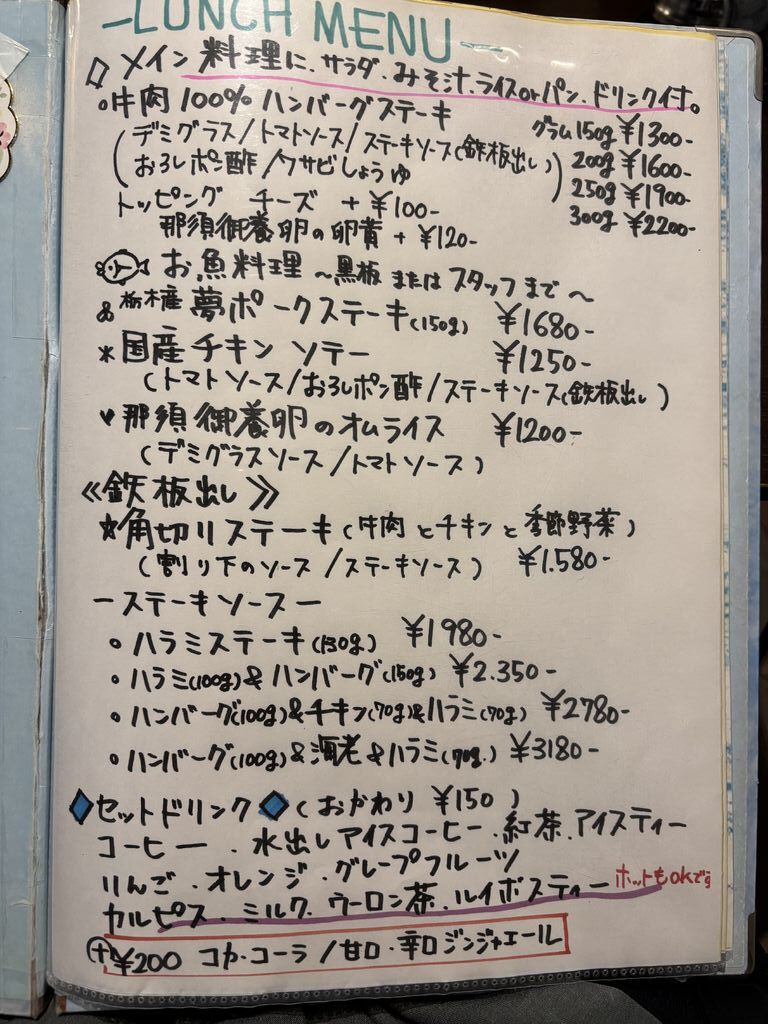 LUNCH MENU
メイン料理に、サラダ、みそ汁、ライスorパン、ドリンク付。
牛肉100%ハンバーグステーキ グラム150g ¥1300-
(デミグラス/トマトソース/ステーキソース(鉄板出し) 200g ¥1600-
おろしポン酢/ワサビしょうゆ) 250g ¥1900-
トッピング チーズ +¥100- 300g ¥2200-
那須御養卵の卵黄 +¥120-
お魚料理 ~黒板またはスタッフまで~
栃木産 夢ポークステーキ(150g) ¥1680-
*国産チキンソテー ¥1250-
(トマトソース/おろしポン酢/ステーキソース(鉄板出し)
♥那須御養卵のオムライス ¥1200-
(デミグラスソース/トマトソース)
《鉄板出し》
★角切りステーキ(牛肉とチキンと季節野菜)
(割り下のソース/ステーキソース) ¥1.580-
-ステーキソース-
・ハラミステーキ(130g) ¥1980-
・ハラミ(100g)&ハンバーグ(150g) ¥2.350-
・ハンバーグ(100g)&チキン(70g)&ハラミ(70g) ¥2780-
・ハンバーグ(100g)&海老&ハラミ(70g.) ¥3180-
◆セットドリンク◆(おかわり ¥150)
コーヒー.水出しアイスコーヒー.紅茶.アイスティー
りんご.オレンジ.グレープフルーツ
カルピス.ミルク.ウーロン茶.ルイボスティー ホットもokです
⊕¥200 コカ・コーラ/甘口・辛口ジンジャエール